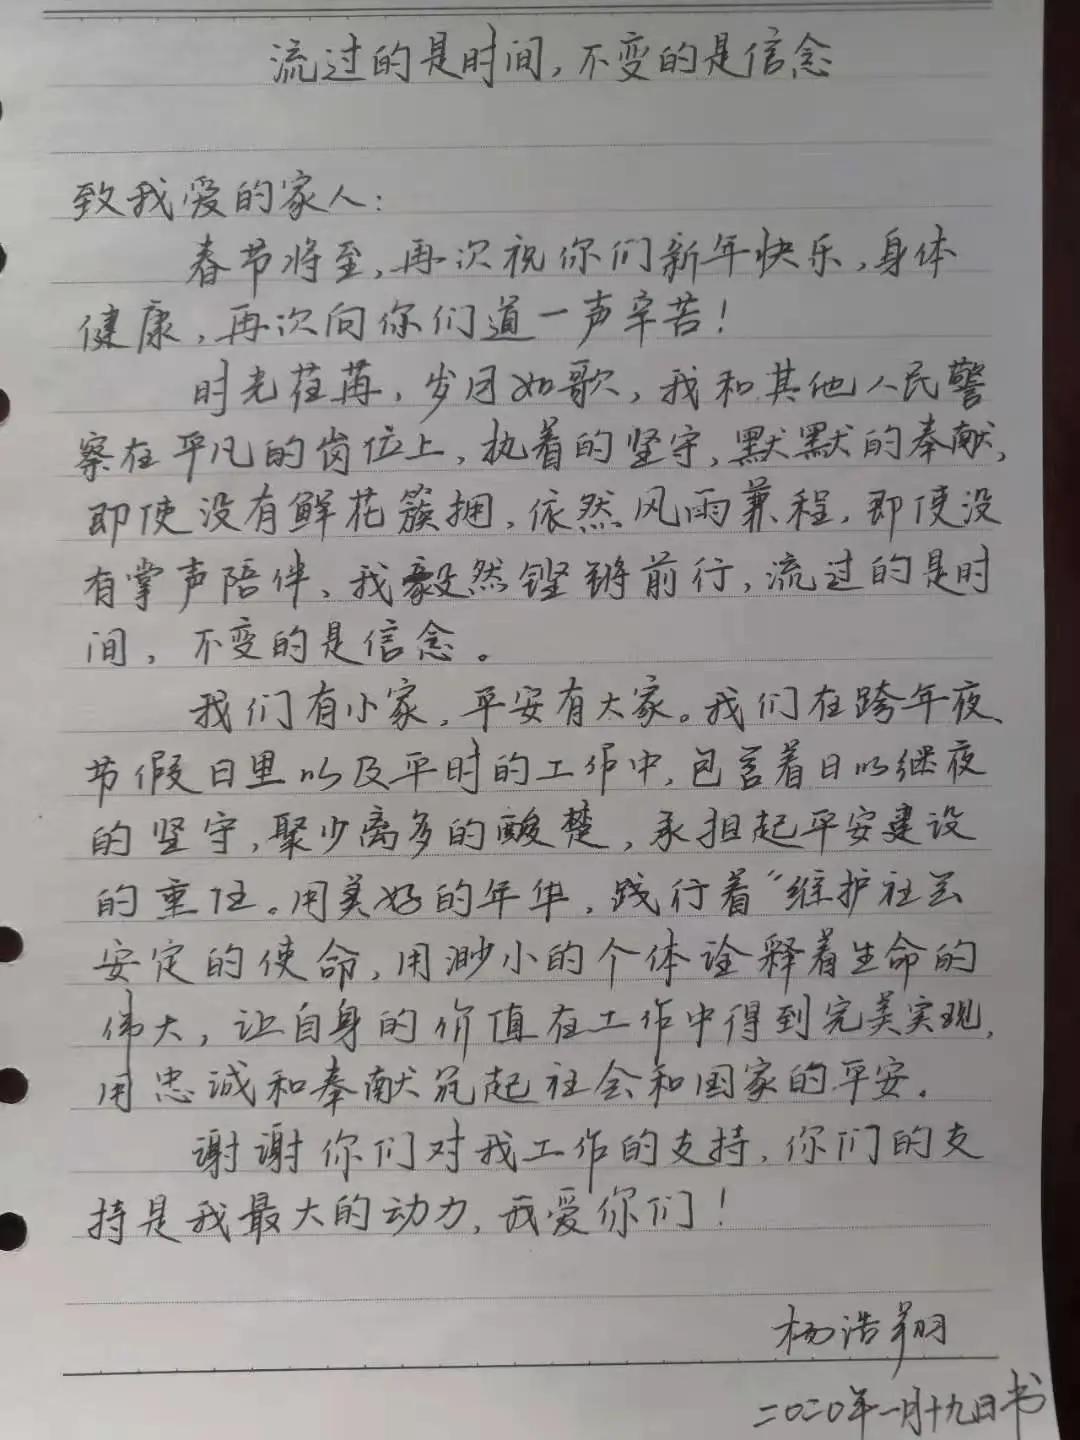 流过的是时间，不变的是信念
致我爱的家人：
春节将至，再次祝你们新年快乐，身体
健康，再次向你们道一声辛苦！
时光荏苒，岁月如歌，我和其他人民警
察在平凡的岗位上，执着的坚守，默默的奉献，
即使没有鲜花簇拥，依然风雨兼程，即使没
有掌声陪伴、我毅然铿锵前行，流过的是时
间，不变的是信念。
我们有小家，平安有大家。我们在跨年夜、
节假日里以及平时的工作中，包含着日以继夜
的坚守，聚少离多的酸楚，承担起平安建设
的重任。用美好的年华，践行着“维护社会
安定的使命，用渺小的个体诠释着生命的
伟大，让自身的价值在工作中得到完美实现，
用忠诚和奉献筑起社会和国家的平安。
谢谢你们对我工作的支持，你们的支
持是我最大的动力，我爱你们！
杨浩翔
二〇二〇年一月十九日书